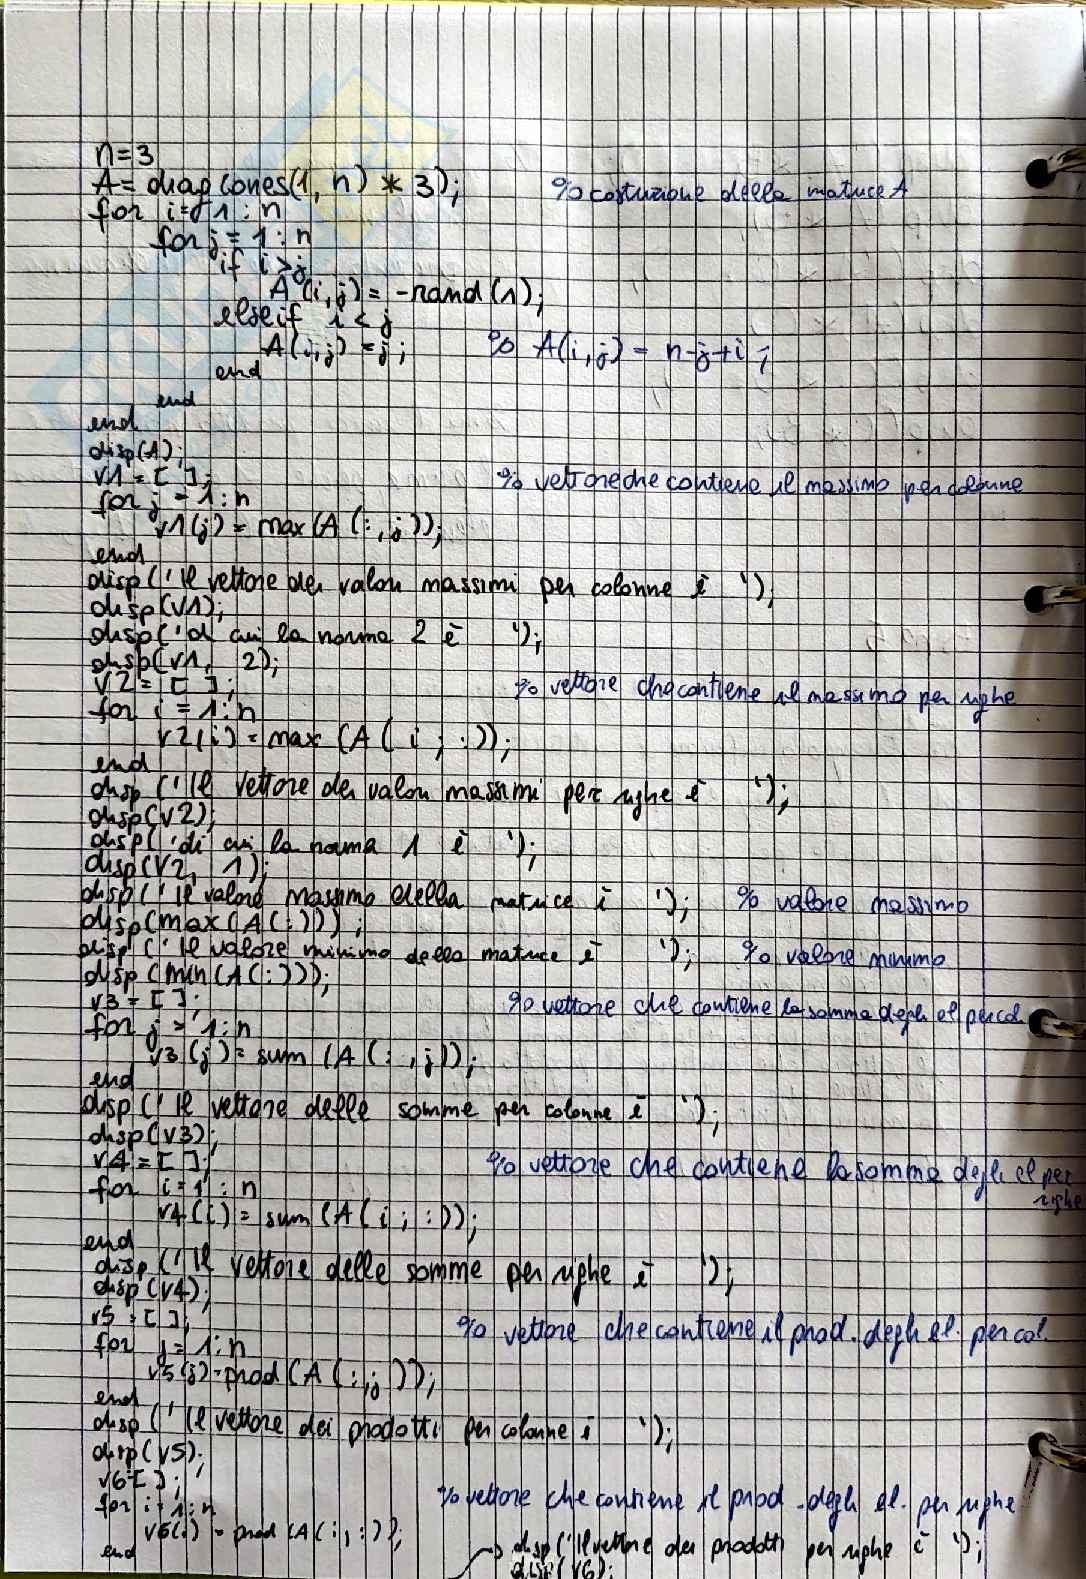 n=3
A= diag(ones(1, n) * 3); % costuzione della matrice A
for i=1:n
for j=1:n
if i>j
A(i,j)= -rand(1);
elseif i<j
A(i,j)=j; % A(i,j)= n-j+i;
end
end
end
disp(A);
v1=[ ]; % vettore che contiene il massimo per colonne
for j=1:n
v1(j)=max(A(:,j));
end
disp('Il vettore dei valori massimi per colonne è ');
disp(v1);
disp('di cui la norma 2 è ');
disp(v1, 2);
v2=[ ]; % vettore che contiene il massimo per righe
for i=1:n
v2(i)=max(A(i;:));
end
disp('Il vettore dei valori massimi per righe è ');
disp(v2);
disp('di cui la norma 1 è ');
disp(v2, 1);
disp('Il valore massimo della matrice è '); % valore massimo
disp(max(A(:)));
disp('Il valore minimo della matrice è '); % valore minimo
disp(min(A(:)));
v3=[ ]; % vettore che contiene la somma degli el per col
for j=1:n
v3(j)=sum(A(:,j));
end
disp('Il vettore delle somme per colonne è ');
disp(v3);
v4=[ ]; % vettore che contiene la somma degli el per righe
for i=1:n
v4(i)=sum(A(i;:));
end
disp('Il vettore delle somme per righe è ');
disp(v4);
v5=[ ]; % vettore che contiene il prod. degli el. per col.
for j=1:n
v5(j)=prod(A(:,j));
end
disp('Il vettore dei prodotti per colonne è ');
disp(v5);
v6=[ ]; % vettore che contiene il prod. degli el. per righe
for i=1:n
v6(i)=prod(A(i,:));
end → disp('Il vettore dei prodotti per righe è ');
disp(v6);